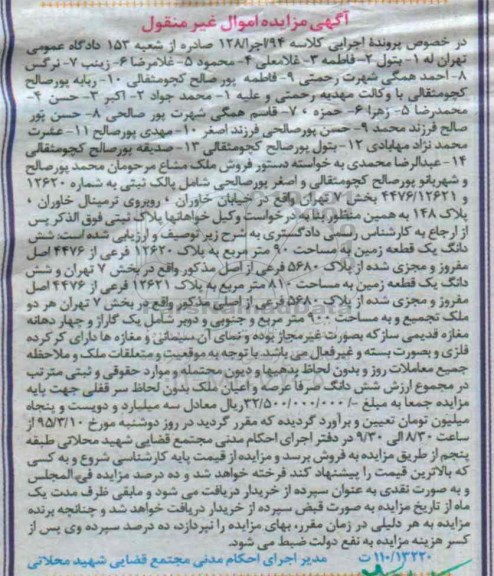 آگهی مزایده اموال غیر منقول
در خصوص پرونده اجرایی کلاسه ۹۴/اجرا/۱۲۸ صادره از شعبه ۱۵۳ دادگاه عمومی
تهران له ۱- بتول ۲- فاطمه ۳- غلامعلی ۴- محمود ۵- غلامرضا ۶- زینب ۷- نرگس
۸- احمد همگی شهرت رحمتی ۹- فاطمه پورصالح کچومثقالی ۱۰- ربابه پورصالح
کچومثقالی با وکالت مهدیه رحمتی و علیه ۱- محمد جواد ۲- اکبر ۳- حسن ۴-
محمدرضا ۵- زهرا ۶- حمزه ، ۷- قاسم همگی شهرت پور صالحی ۸- حسن پور
صالح فرزند محمد ۹- حسن پورصالحی فرزند اصغر ۱۰- مهدی پورصالح ۱۱- عشرت
محمد نژاد مهابادی ۱۲- بتول پورصالح کچومثقالی ۱۳- صدیقه پورصالح کچومثقالی
۱۴- عبدالرضا محمدی به خواسته دستور فروش ملک مشاع مرحومان محمد پورصالح
و شهربانو پورصالح کچومثقالی و اصغر پورصالحی شامل پلاک ثبتی به شماره ۱۲۶۲۰
و ۴۴۷۶/۱۲۶۲۱ بخش ۷ تهران واقع در خیابان خاوران ، روبروی ترمینال خاوران ،
پلاک ۱۴۸ به همین منظور بنا به درخواست وکیل خواهانها پلاک ثبتی فوق الذکر پس
از ارجاع به کارشناس رسمی دادگستری به شرح زیر توصیف و ارزیابی شده است: شش
دانگ یک قطعه زمین به مساحت ۹۰ متر مربع به پلاک ۱۲۶۲۰ فرعی از ۴۴۷۶ اصل
مفروز و مجزی شده از پلاک ۵۶۸۰ فرعی از اصل مذکور واقع در بخش ۷ تهران و شش
دانگ یک قطعه زمین به مساحت ۸۱۰ متر مربع به پلاک ۱۲۶۲۱ فرعی از ۴۴۷۶ اصل
مفروز و مجزی شده از پلاک ۵۶۸۰ فرعی از اصلی مذکور واقع در بخش ۷ تهران هر دو
ملک تجمیع و به مساحت ۹۰۰ متر مربع و جنوبی و دوبر شامل یک گاراژ و چهار دهانه
مغازه قدیمی ساز که بصورت غیر مجاز بوده و نمای آن سیمانی و مغازه ها دارای کرکره
فلزی و بصورت بسته و غیر فعال می باشد. با توجه به موقعیت و متعلقات ملک و ملاحظه
جمیع معاملات روز و بدون لحاظ بدهیها و دیون محتمله و موارد حقوقی و ثبتی مترتب
در مجموع ارزش شش دانگ صرفا عرصه و اعیان ملک بدون لحاظ سر قفلی جهت پایه
مزایده جمعا به مبلغ -/۳۲/۵۰۰/۰۰۰/۰۰۰ریال معادل سه میلیارد و دویست و پنجاه
میلیون تومان تعیین و برآورد گردیده که مقرر گردید در روز دوشنبه مورخ ۹۵/۳/۱۰ از
ساعت ۸/۳۰ الی ۹/۳۰ در دفتر اجرای احکام مدنی مجتمع قضایی شهید محلاتی طبقه
پنجم از طریق مزایده به فروش برسد و مزایده از قیمت پایه کارشناسی شروع و به کسی
که بالاترین قیمت را پیشنهاد کند فرخته خواهد شد و ده درصد مزایده فی المجلس
و به صورت نقدی به عنوان سپرده از خریدار دریافت می شود و مابقی ظرف مدت یک
ماه از تاریخ مزایده به صورت قبض سپرده از خریدار دریافت خواهد شد و چنانچه برنده
مزایده به هر دلیلی در زمان مقرر، بهای مزایده را نپردازد، ده درصد سپرده وی پس از
کسر هزینه مزایده به نفع دولت ضبط می شود.
۱۱۰/۱۳۲۲۰ت مدیر اجرای احکام مدنی مجتمع قضایی شهید محلاتی